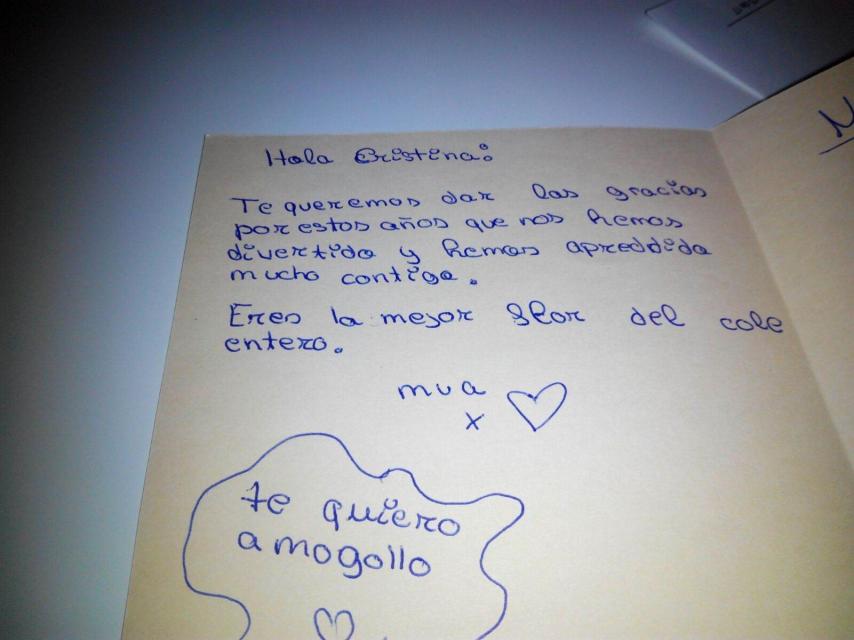 Hola Cristina:
Te queremos dar las gracias
por estos años que nos hemos
divertido y hemos apreddido
mucho contigo.
Eres la mejor flor del cole
entero.
mua
x
te quiero
a mogollo